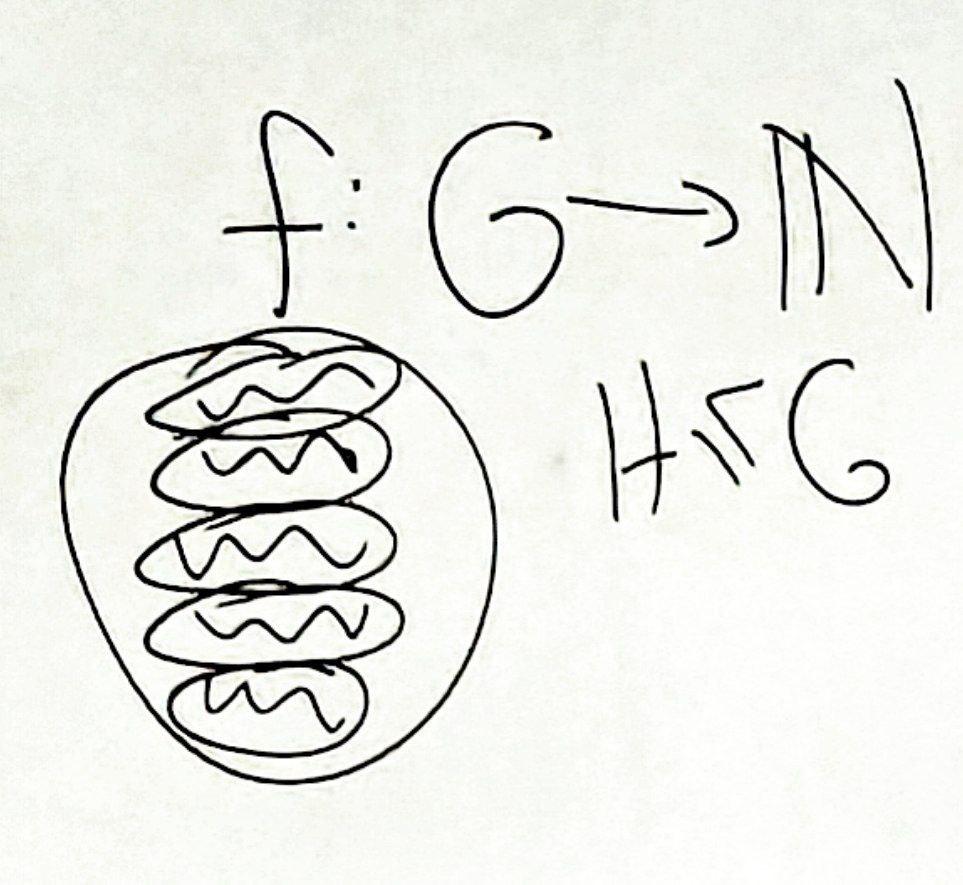 f: G → ℕ
H ≤ G